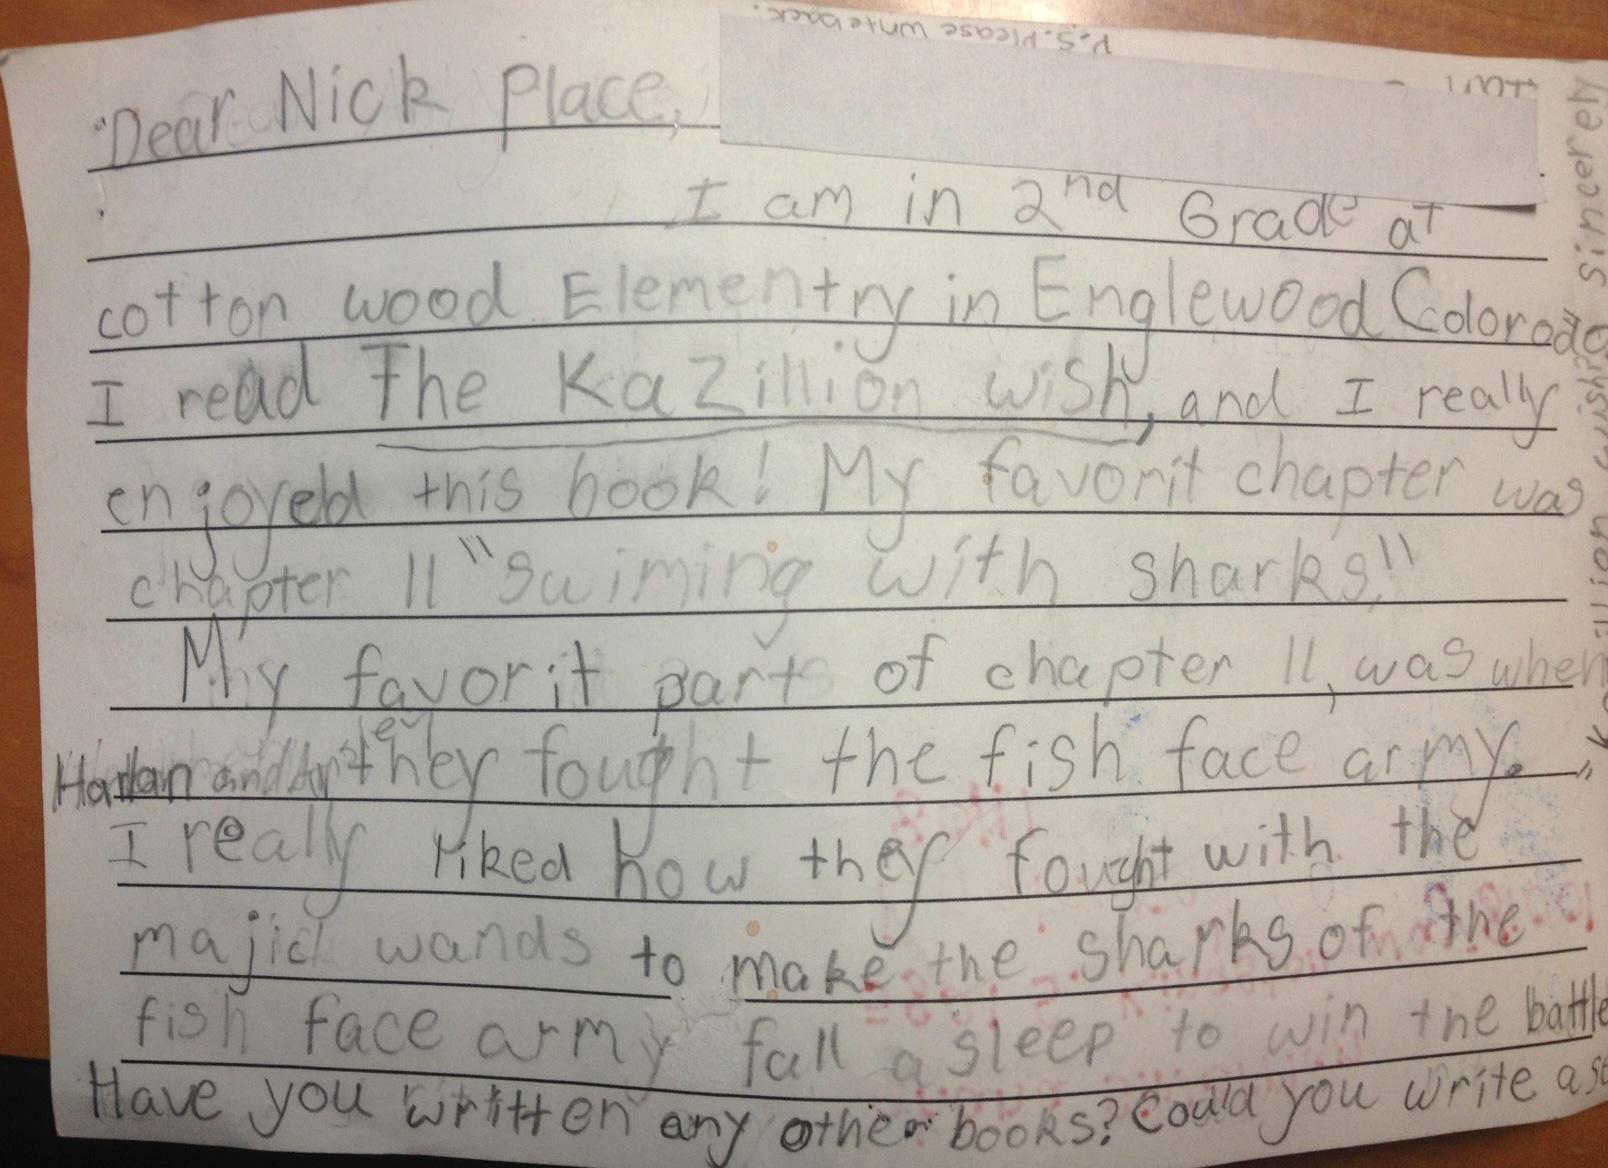 Dear Nick Place,
I am in 2nd Grade at
cotton wood Elementry in Englewood Colorado
I read The KaZillion wish, and I really
enjoyed this book! My favorit chapter was
chapter 11 "Swiming with sharks."
My favorit part of chapter 11, was when
Harlan and they fought the fish face army.
I really liked how they fought with the
majic wands to make the sharks of the
fish face army fall asleep to win the battle
Have you written any other books? Could you write a
Kazillion wish
sincerely
P.S. Please write back.